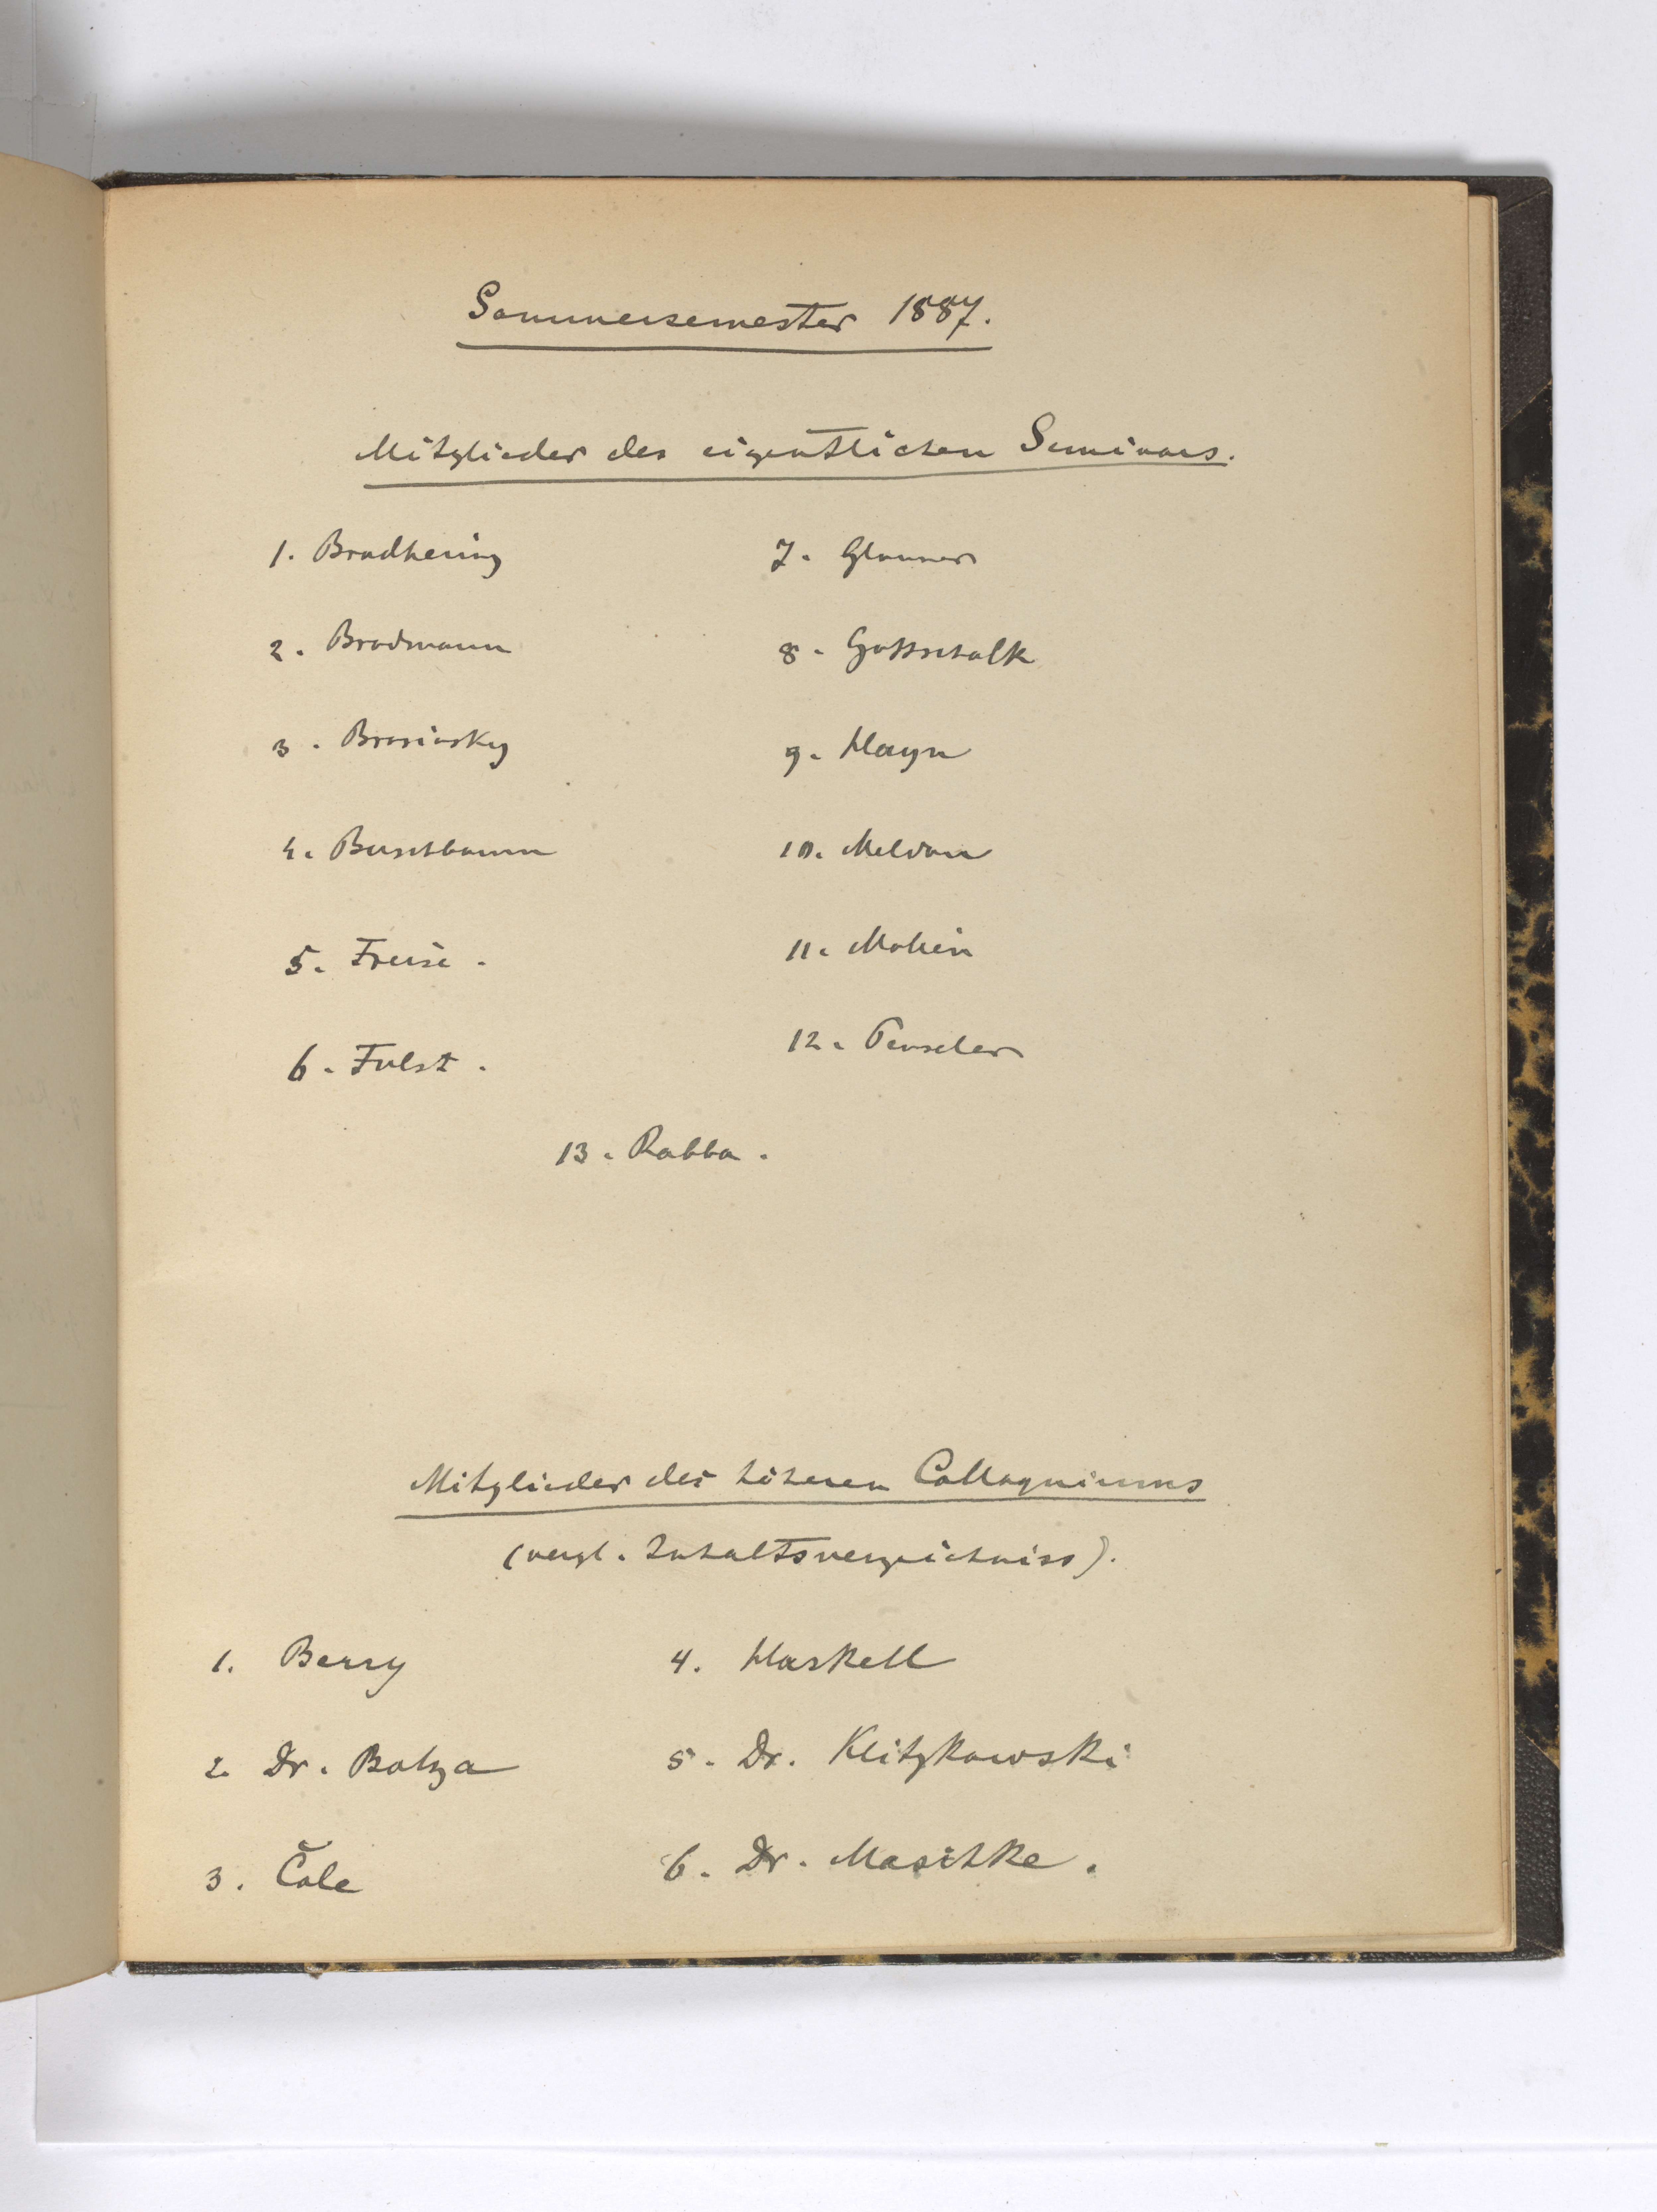 Sommersemester 1887.
Mitglieder des eigentlichen Seminars.
1. Bradhering
2. Brodmann
3. Brosinsky
4. Buschbaum
5. Freise.
6. Fulst.
7. Glauner
8. Gottschalk
9. Hayn
10. Meldau
11. Molien
12.
13. Rabba.
Mitglieder des höheren Colloquiums
(vergl. Inhaltsverzeichniss).
1. Berry
2. Dr. Bolza
3. Cole
4. Haskell
5. Dr. Klitzkowski
6. Dr. Maschke.